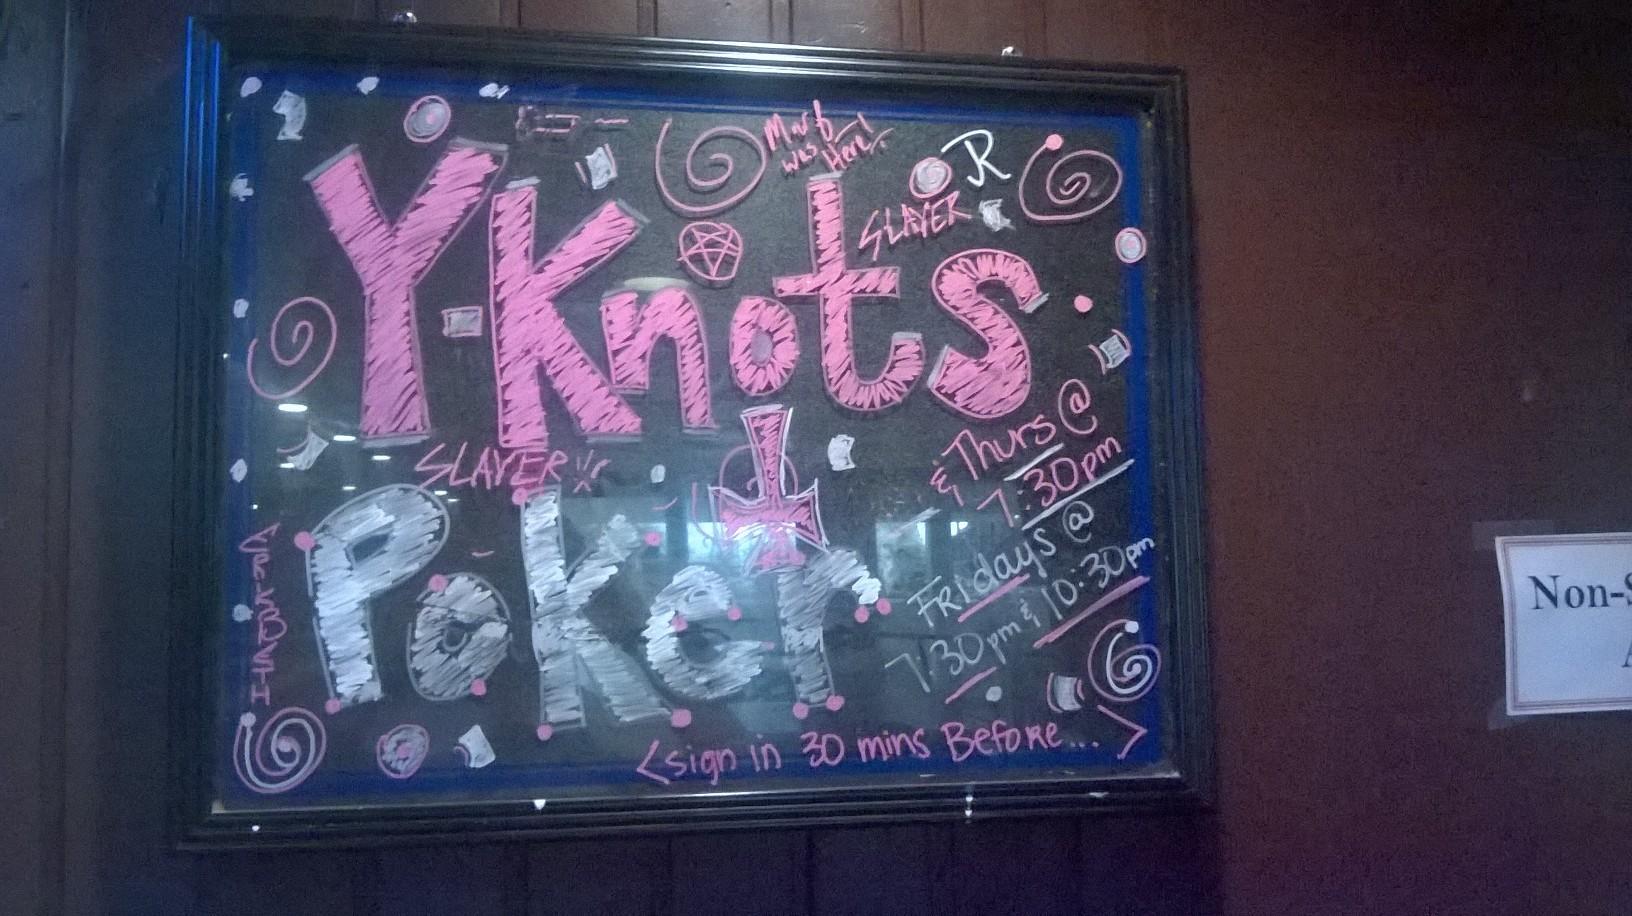 Mark
was Here!
JR
SLAYER
Y-Knots
SLAYER
Poker
& Thurs @
7:30pm
Fridays @
7:30pm & 10:30pm
<sign in 30 mins Before...>
Non-S
A